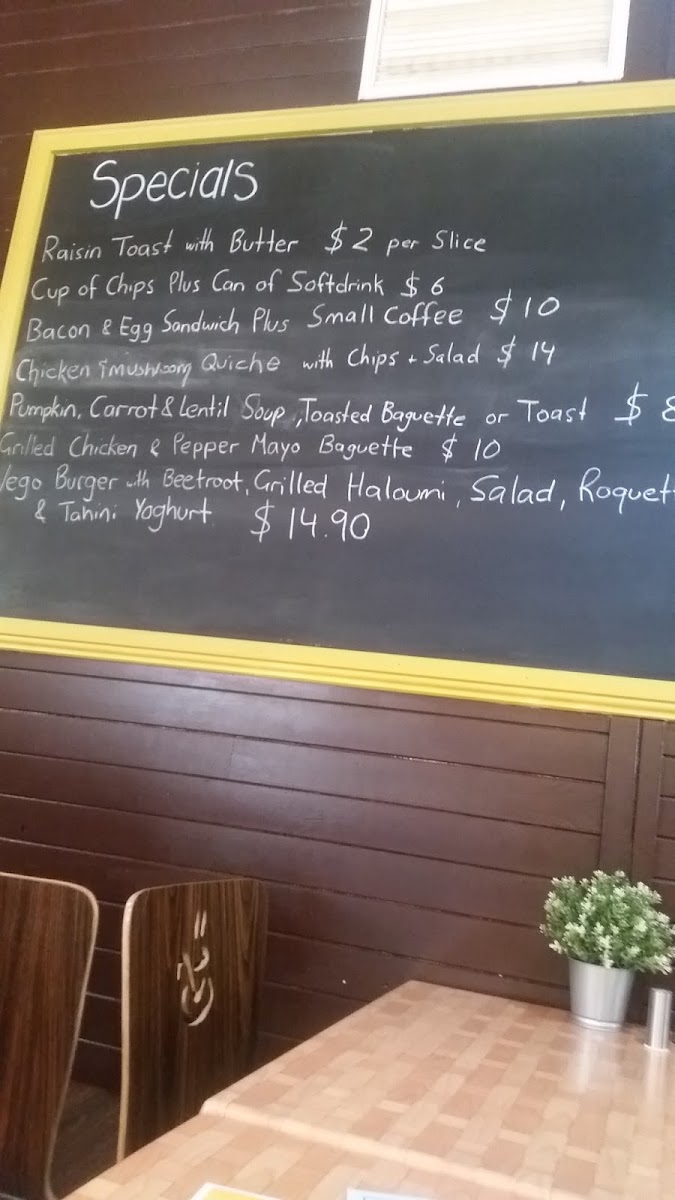 Specials
Raisin Toast with Butter $2 per Slice
Cup of Chips Plus Can of Softdrink $6
Bacon & Egg Sandwich Plus Small Coffee $10
Chicken & mushroom Quiche with Chips + Salad $14
Pumpkin, Carrot & Lentil Soup, Toasted Baguette or Toast $8
Grilled Chicken & Pepper Mayo Baguette $10
Vego Burger with Beetroot, Grilled Haloumi, Salad, Roquett
& Tahini Yoghurt $14.90